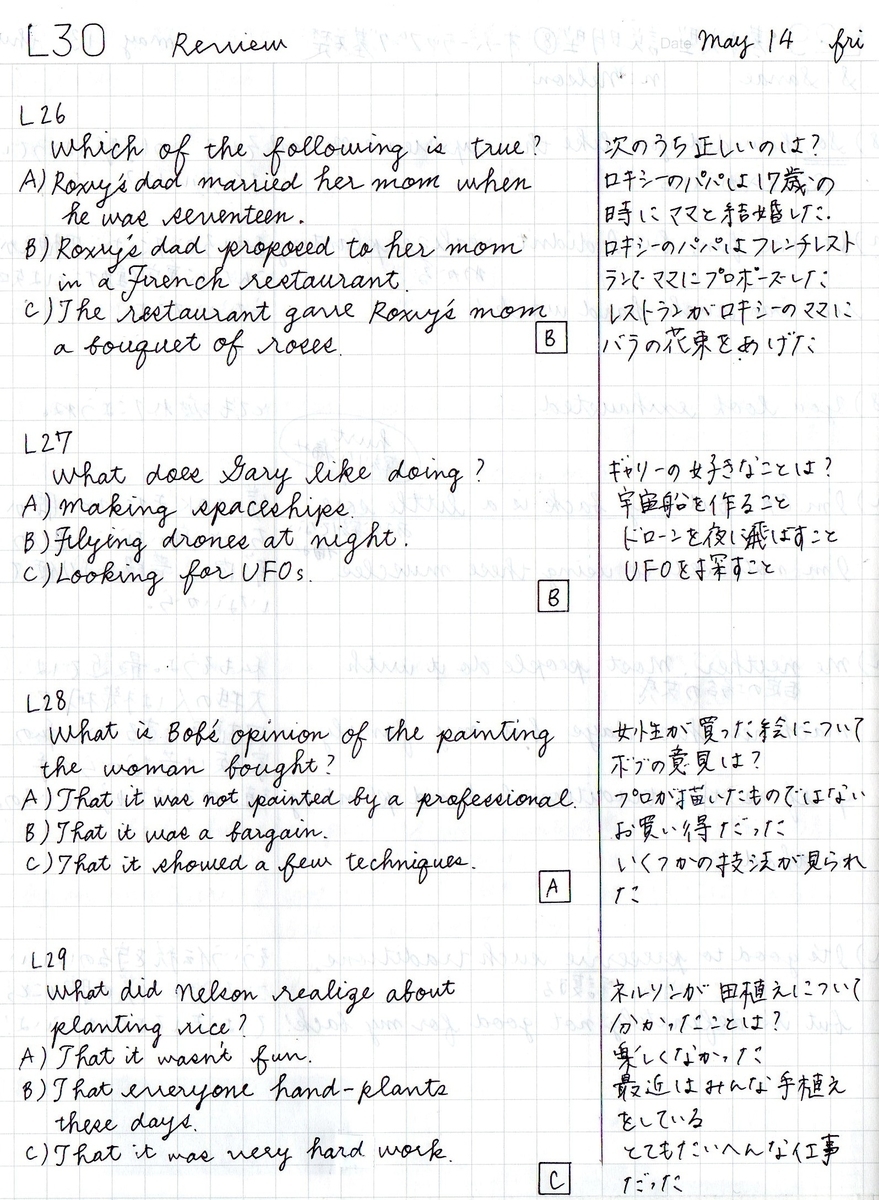 L30 Review Date May 14 fri
L26
Which of the following is true?
A) Roxy's dad married her mom when
he was seventeen.
B) Roxy's dad proposed to her mom
in a French restaurant.
C) The restaurant gave Roxy's mom
a bouquet of roses.
B
次のうち正しいのは？
ロキシーのパパは17歳の
時にママと結婚した.
ロキシーのパパはフレンチレスト
ランでママにプロポーズした
レストランがロキシーのママに
バラの花束をあげた
L27
What does Gary like doing?
A) Making spaceships.
B) Flying drones at night.
C) Looking for UFOs.
B
ギャリーの好きなことは？
宇宙船を作ること
ドローンを夜に飛ばすこと
UFOを探すこと
L28
What is Bob's opinion of the painting
the woman bought?
A) That it was not painted by a professional.
B) That it was a bargain.
C) That it showed a few techniques.
A
女性が買った絵について
ボブの意見は？
プロが描いたものではない
お買い得だった
いくつかの技法が見られ
た
L29
What did Nelson realize about
planting rice?
A) That it wasn't fun.
B) That everyone hand-plants
these days.
C) That it was very hard work.
C
ネルソンが田植えについて
分かったことは？
楽しくなかった
最近はみんな手植え
をしている
とてもたいへんな仕事
だった